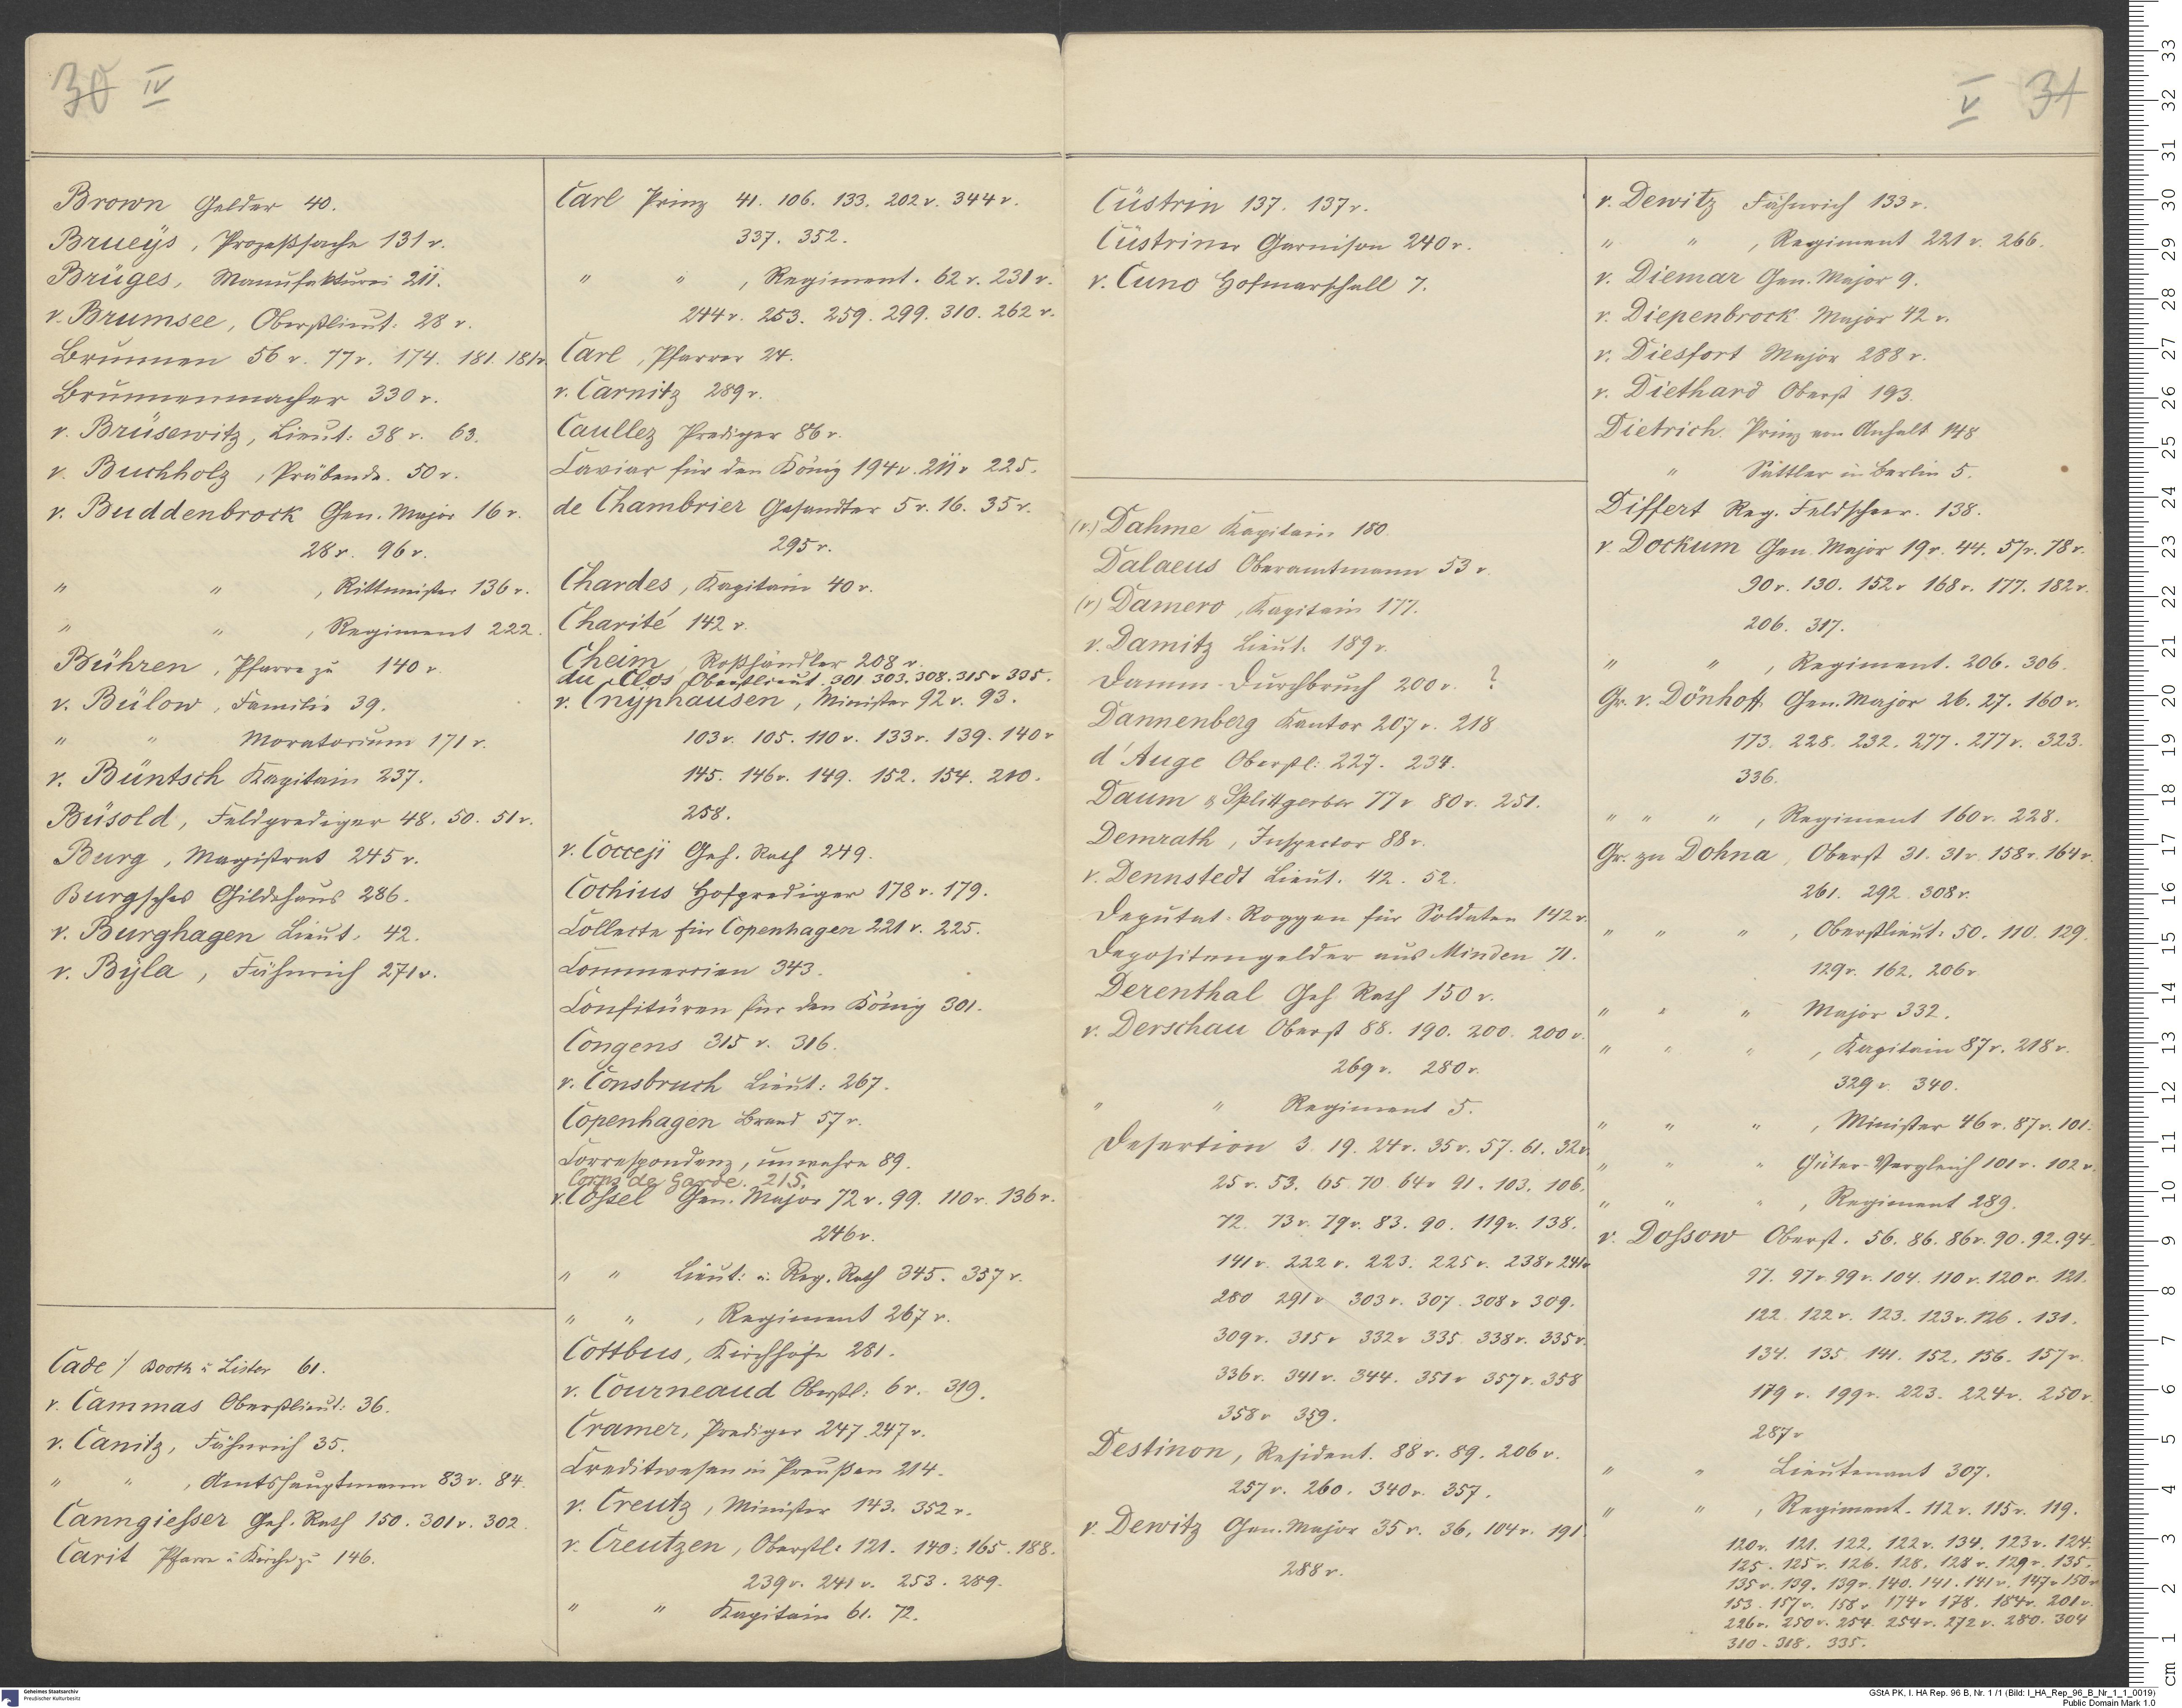 30 IV
Brown Gelder 40.
Brueÿs, Prozeßsache 131 v.
Brüges, Manufakturei 211.
v. Brumsee, Oberstlieut: 28 v.
Brunnen 56 v. 77 v. 174. 181. 181 v.
Brunnenmacher 330 v.
v. Brüsewitz, Lieut: 38 v. 63.
v. Buchholz, Präbende. 50 v.
v. Buddenbrock Gen. Major 16 v.
28 v. 96 v.
" " , Rittmeister 136 v.
" " , Regiment 222.
Bühren, Pfarre zu 140 v.
v. Bülow, Familie 39.
" " Moratorium 171 v.
v. Büntsch Kapitain 237.
Büsold, Feldprediger 48. 50. 51 v.
Burg, Magistrat 245 v.
Burgsches Gildehaus 286.
v. Burghagen Lieut. 42.
v. Bÿla, Fähnrich 271 v.
Cade / Booth u Lister 61.
v. Cammas Oberstlieut: 36.
v. Canitz, Fähnrich 35.
" " , Amtshauptmann 83 v. 84.
Canngiesser Geh. Rath 150. 301 v. 302.
Carit Pfarre u Kirche zu 146.
Carl Prinz 41. 106. 133. 202 v. 344 v.
337. 352.
" " , Regiment. 62 v. 231 v.
244 v. 253. 259. 299. 310. 262 v.
Carl, Pfarrer 24.
v. Carnitz 289 v.
Caullez Prediger 86 v.
Caviar für den König 194 v. 211 v 225.
de Chambrier Gesandter 5 v. 16. 35 v.
295 v.
Chardes, Kapitain 40 v.
Charité 142 v.
Cheim, Roßhändler 208 v.
du Clos Oberstlieut. 301. 303. 308. 315 v 335.
v. Cnÿphausen, Minister 92 v. 93.
103 v. 105. 110 v. 133 v. 139. 140 v
145. 146 v. 149. 152. 154. 210.
258.
v. Cocceji Geh. Rath 249.
Cochius Hofprediger 178 v. 179.
Collecte für Copenhagen 221 v. 225.
Commercien 343.
Confitüren für den König 301.
Congens 315 v. 316.
v. Consbruch Lieut: 267.
Copenhagen Brand 57 v.
Correspondenz, unwahre 89.
Corps de Garde. 215.
v. Cossel Gen. Major 72 v. 99. 110 v. 136 v.
246 v.
" " Lieut: u. Reg. Rath 345. 357 v.
" " , Regiment 267 v.
Cottbus, Kirchhöfe 281.
v. Courneaud Oberstl: 6 v. 319.
Cramer, Prediger 247. 247 v.
Creditwesen in Preußen 214.
v. Creutz, Minister 143. 352 v.
v. Creutzen, Oberstl: 121. 140. 165. 188.
239 v. 241 v. 253. 289.
" " Kapitain 61. 72.
V 31
Cüstrin 137. 137 v.
Cüstriner Garnison 240 v.
v. Cuno Hofmarschall 7.
(v.) Dahme Kapitain 180.
Dalaeus Oberamtmann 53 v.
(v) Damero, Kapitain 177.
v. Damitz Lieut. 189 v.
Damm-Durchbruch 200 v. ?
Dannenberg Kantor 207 v. 218
d'Auge Oberstl: 227. 234.
Daum & Splittgerber 77 v 80 v. 251.
Demrath, Inspector 88 v.
v. Dennstedt Lieut. 42. 52.
Deputat-Roggen für Soldaten 142 v.
Depositengelder aus Minden 71.
Derenthal Geh. Rath 150 v.
v. Derschau Oberst 88. 190. 200. 200 v.
269 v. 280 v.
" " Regiment 5.
Desertion 3. 19. 24 v. 35 v. 57. 61. 32 v.
25 v. 53. 65. 70. 64 v 91. 103. 106.
72. 73 v. 79 v. 83. 90. 119 v. 138.
141 v. 222 v. 223. 225 v. 238 v 241 v
280 291 v 303 v. 307. 308 v 309.
309 v. 315 v 332 v 335. 338 v. 335 v.
336 v. 341 v. 344. 351 v 357 v. 358
358 v 359.
Destinon, Resident. 88 v. 89. 206 v.
257 v. 260. 340 v. 357.
v. Dewitz Gen. Major 35 v. 36. 104 v. 191.
288 v.
v. Dewitz Fähnrich 133 v.
" " , Regiment 221 v. 266.
v. Diemar Gen. Major 9.
v. Diepenbrock Major 42 v.
v. Diesfort Major 288 v.
v. Diethard Oberst 193.
Dietrich. Prinz von Anhalt 148
" Sattler in Berlin 5.
Differt Reg. Feldscheer. 138.
v. Dockum Gen. Major 19 v. 44. 57 v. 78 v.
90 v. 130. 152 v 168 v. 177. 182 v.
206. 317.
" " , Regiment. 206. 306.
Gr. v. Dönhoff Gen. Major 26. 27. 160 v.
173. 228. 232. 277. 277 v. 323.
336.
" " " , Regiment 160 v. 228.
Gr. zu Dohna, Oberst 31. 31 v. 158 v. 164 v.
261. 292. 308 v.
" " " , Oberstlieut: 50. 110. 129.
129 v. 162. 206 v.
" " " Major 332.
" " " , Kapitain 87 v. 218 v.
329 v. 340.
" " " , Minister 46 v. 87 v. 101.
" " " Güter-Vergleich 101 v. 102 v.
" " " , Regiment 289.
v. Dossow Oberst. 56. 86. 86 v. 90. 92. 94.
97. 97 v. 99 v. 104. 110 v. 120 v. 121.
122. 122 v. 123. 123 v. 126. 131.
134. 135. 141. 152. 156. 157 v.
179 v. 199 v. 223. 224 v. 250 v.
287 v
" " Lieutenant 307.
" " , Regiment. 112 v. 115 v. 119.
120 v. 121. 122. 122 v. 134. 123 v. 124.
125. 125 v. 126. 128. 128 v. 129 v. 135.
135 v. 139. 139 v. 140. 141. 141 v. 147 v 150 v
153. 157 v. 158 v 174 v 178. 184 v. 201 v.
226 v. 250 v. 254. 254 v. 272 v. 280. 304
310. 318. 335.
Geheimes Staatsarchiv
Preußischer Kulturbesitz
GStA PK, I. HA Rep. 96 B, Nr. 1 /1 (Bild: I_HA_Rep_96_B_Nr_1_1_0019)
Public Domain Mark 1.0
cm 1 2 3 4 5 6 7 8 9 10 11 12 13 14 15 16 17 18 19 20 21 22 23 24 25 26 27 28 29 30 31 32 33